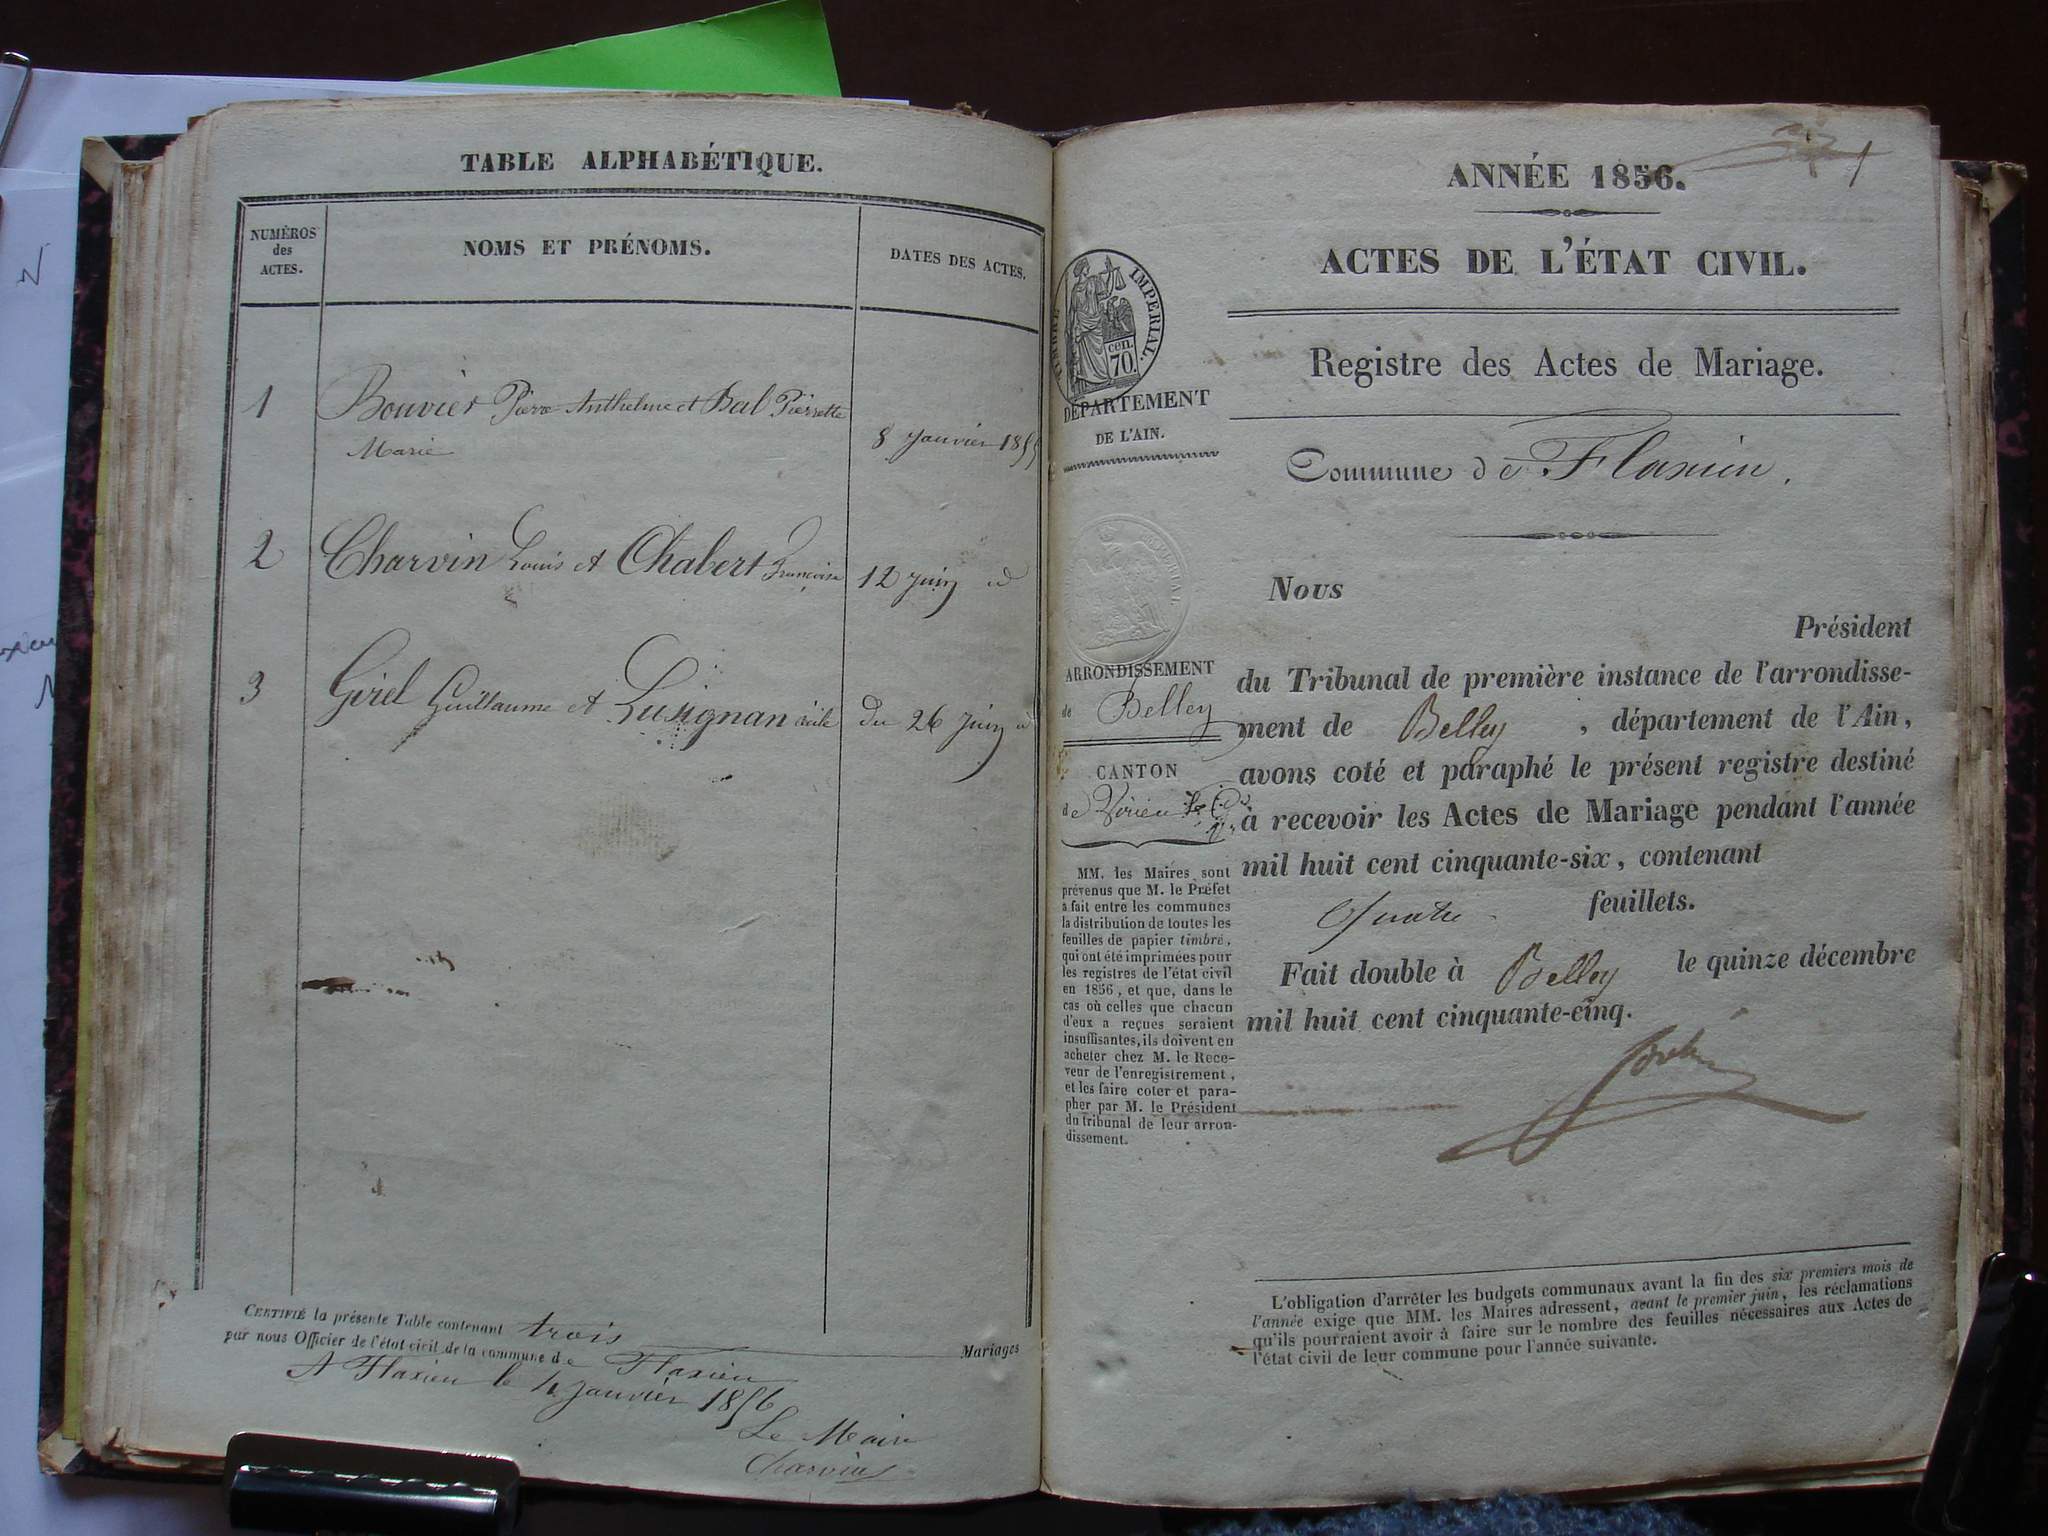 TABLE ALPHABÉTIQUE.
NUMÉROS
des
ACTES.
NOMS ET PRÉNOMS.
DATES DES ACTES.
1
Bouvier Pierre Anthelme et Bal Pierrette
Marie
8 Janvier 1855
2
Charvin Louis et Chabert Françoise
12 Juin id
3
Girel Guillaume et Lusignan
du 26 Juin id
CERTIFIÉ la présente Table contenant trois Mariages
par nous Officier de l'état civil de la commune de Flaxieu
A Flaxieu le 4 janvier 1856
Le Maire
Charvin
1
ANNÉE 1856.
ACTES DE L'ÉTAT CIVIL.
Registre des Actes de Mariage.
Commune de Flaxieu.
TIMBRE IMPÉRIAL.
70 cen.
DÉPARTEMENT
DE L'AIN.
ARRONDISSEMENT
de Belley
CANTON
de Virieu le Gd
MM. les Maires sont
prévenus que M. le Préfet
a fait entre les communes
la distribution de toutes les
feuilles de papier timbré,
qui ont été imprimées pour
les registres de l'état civil
en 1856, et que, dans le
cas où celles que chacun
d'eux a reçues seraient
insuffisantes, ils doivent en
acheter chez M. le Rece-
veur de l'enregistrement,
et les faire coter et para-
pher par M. le Président
du tribunal de leur arron-
dissement.
Nous
Président
du Tribunal de première instance de l'arrondisse-
ment de Belley, département de l'Ain,
avons coté et paraphé le présent registre destiné
à recevoir les Actes de Mariage pendant l'année
mil huit cent cinquante-six, contenant
Quatre feuillets.
Fait double à Belley le quinze décembre
mil huit cent cinquante-cinq.
L'obligation d'arrêter les budgets communaux avant la fin des six premiers mois de
l'année exige que MM. les Maires adressent, avant le premier juin, les réclamations
qu'ils pourraient avoir à faire sur le nombre des feuilles nécessaires aux Actes de
l'état civil de leur commune pour l'année suivante.